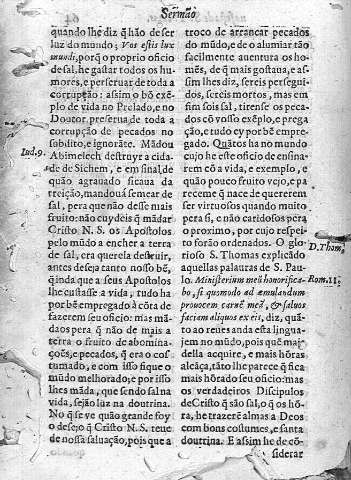 Sermão
quando lhe diz q̃ hão de ser
luz do mundo; Vos estis lux
mundi, porq̃ o proprio officio
de sal, he gastar todos os hu-
mores, e perseruar de toda a
corrupção: assim o bõ exẽ-
plo de vida no Prelado, e no
Doutor preserua, de toda a
corrupção de pecados no
subdito, e ignorãte. Mãdou
Abimelech destruyr a cida-
de de Sichem, e em sinal, de
quão agrauado ficaua da
treição, mandou a semear de
sal, pera que não desse mais
fruito: não cuydeis q̃ mãdar
Cristo N. S. os Apostolos
pelo mũdo a encher a terra
de sal, era querela destruir,
antes deseja tanto nosso bẽ,
q̃ inda que a seus Apostolos
lhe custasse a vida, tudo ha
por bẽ empregado à cõra de
fazerem seu oficio: mas mã-
daos pera q̃ não de mais a
terra o fruito de abomina-
ções, e pecados, q̃ era o cos-
tumado, e com isso fique o
mũdo melhorado, e por isso
lhes mãda, que sendo sal na
vida, sejão luz na doutrina.
No q̃ se ve quão grande foy
o desejo, q̃ Cristo N.S. teue
de nossa saluação, pois que a
Iud. 9.
troco de arrancar pecados
do mũdo, e de o alumiar tão
facilmente auentura os ho-
mẽs, de q̃ mais gostaua, e as-
sim lhes diz, sereis persegui-
dos, sereis mortos, mas em
fim sois sal, tirense os peca-
dos cõ vosso exẽplo, e prega
ção, e tudo ey por bẽ empre-
gado. Quãtos ha no mundo
cujo he este oficio de ensina-
rem cõ a vida, e exemplo, e
quão pouco fruito vejo, pa
receme q̃ nace de quererem
ser virtuosos quando muito
pera si, e não caridosos pera
o proximo, por cujo respei-
to forão ordenados. O glo-
rioso S. Thomas explicãdo
aquellas palauras de S. Pau-
lo. Ministerium meũ honorifica-
bo, si quomodo ad æmulandum
prouocem carnẽ meã, & saluos
faciam aliquos ex eis, diz, quã-
to ao reues anda esta lingua-
jem no mũdo, pois quẽ mais
della acquire, e mais hõras
alcãça, tãto lhe parece q̃ fica
mais hõrado seu oficio: mas
os verdadeiros Discipulos
de Cristo q̃ são sal, o q̃ os hõ-
ra, he trazerẽ almas a Deos
com bons costumes, e santa
doutrina. E assim he de cõ-
siderar
D. Thom.
Rom. 11.